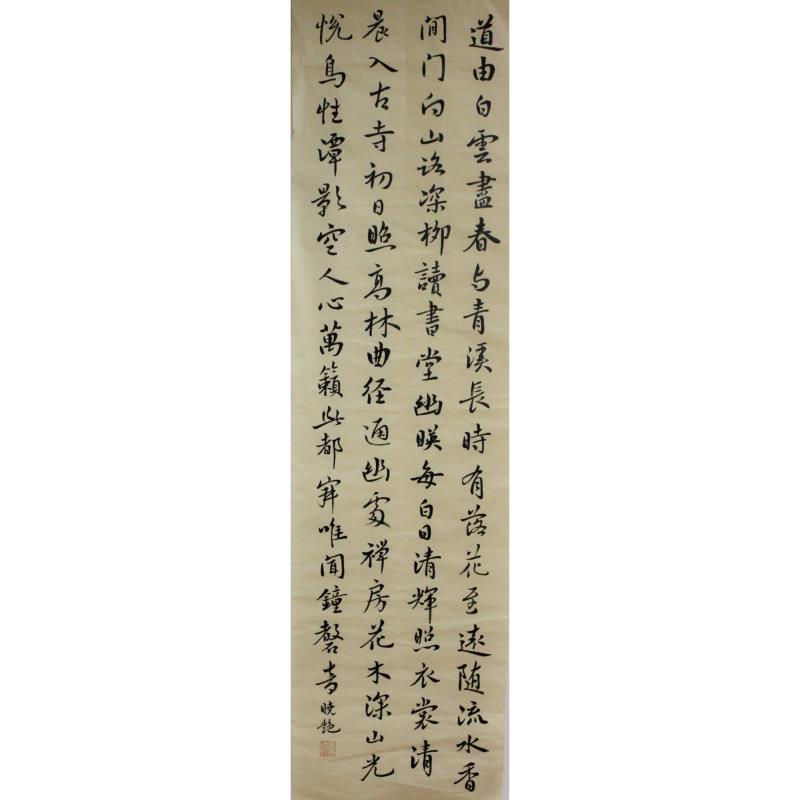 道由白雲盡春与青溪長時有落花至遠随流水香
閒门向山路深柳讀書堂幽映每白日清輝照衣裳清
晨入古寺初日照高林曲径通幽處禅房花木深山光
悦鳥性潭影空人心萬籟此都寂唯聞鐘磬音
晓艶